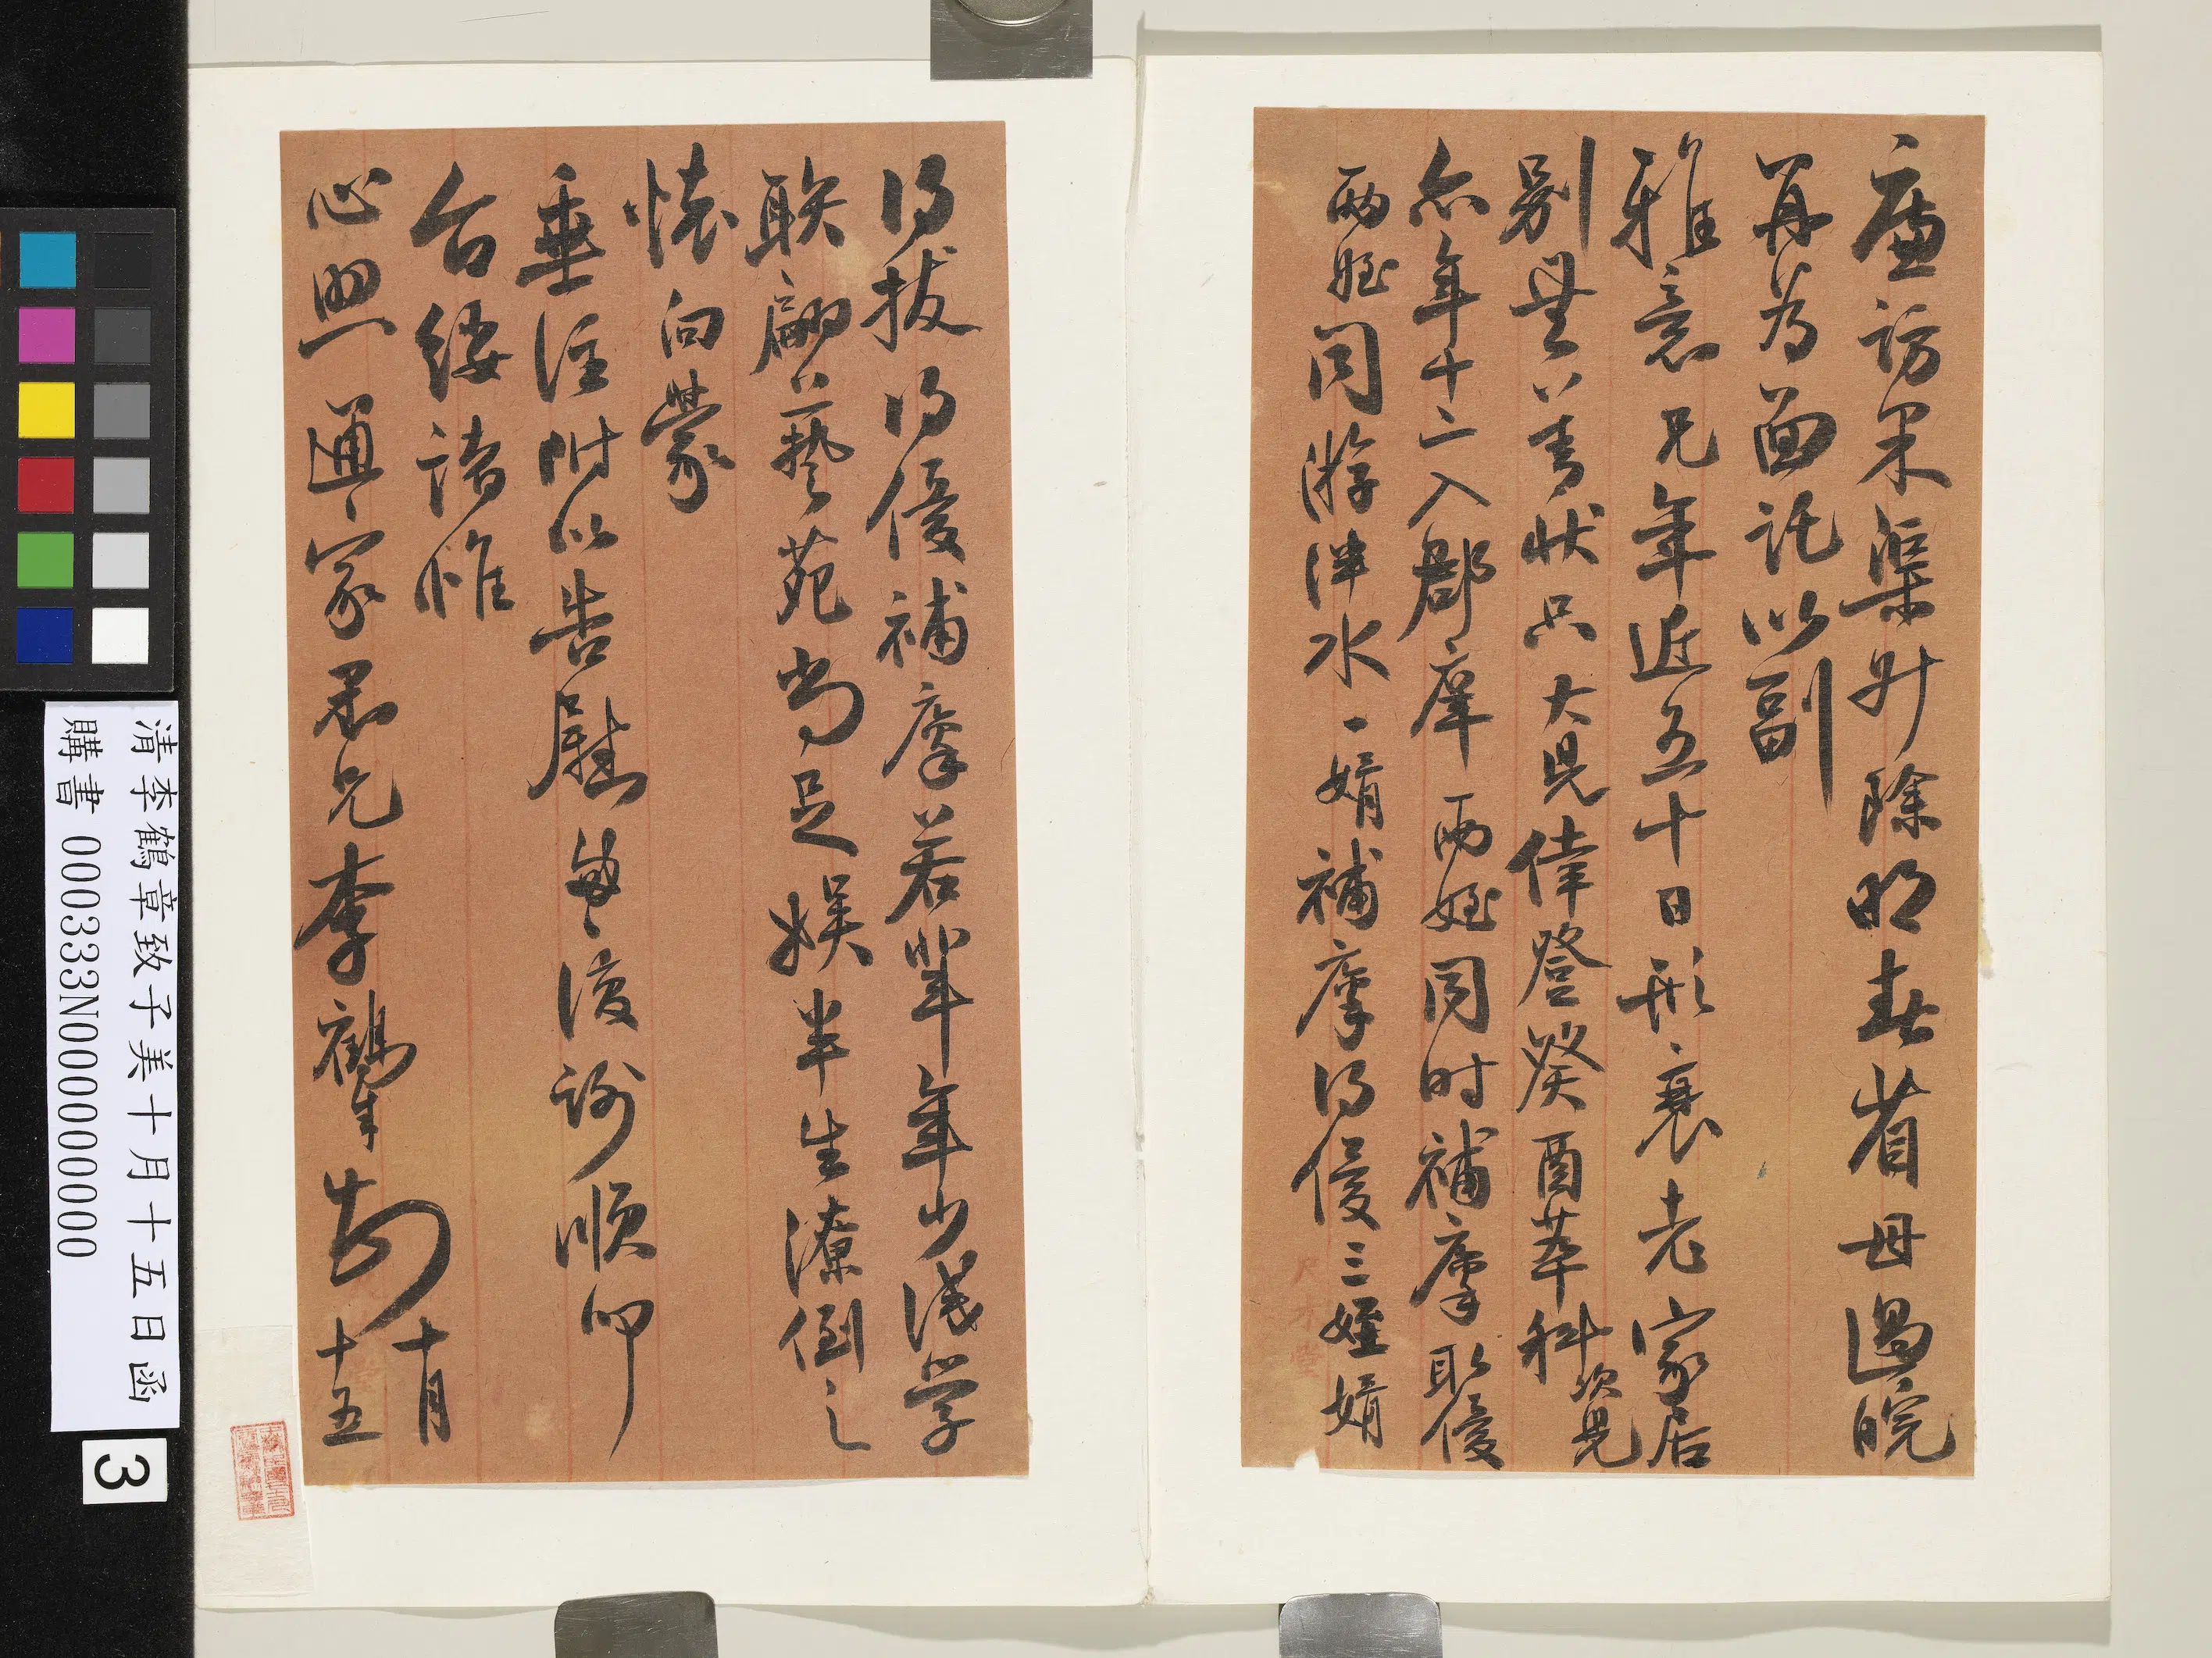 廉訪果渠升除明春省母過皖
再為面託以副
雅意兄年近五十日形衰老家居
別無善狀只大兒偉登癸酉萃科次兒
亦年十二入郡庠兩姪同時補廩取優
兩姪同游泮水一婿補廩得優三姪婿
得拔得優補廩若輩年少淺學
聯翩藝苑尚足娛半生潦倒之
懷向蒙
垂注附以告慰敬復謝順叩
台綏諸惟
心照通家愚兄李鶴章
十月
十五
清李鶴章致子美十月十五日函
購書 000333N000000000
3